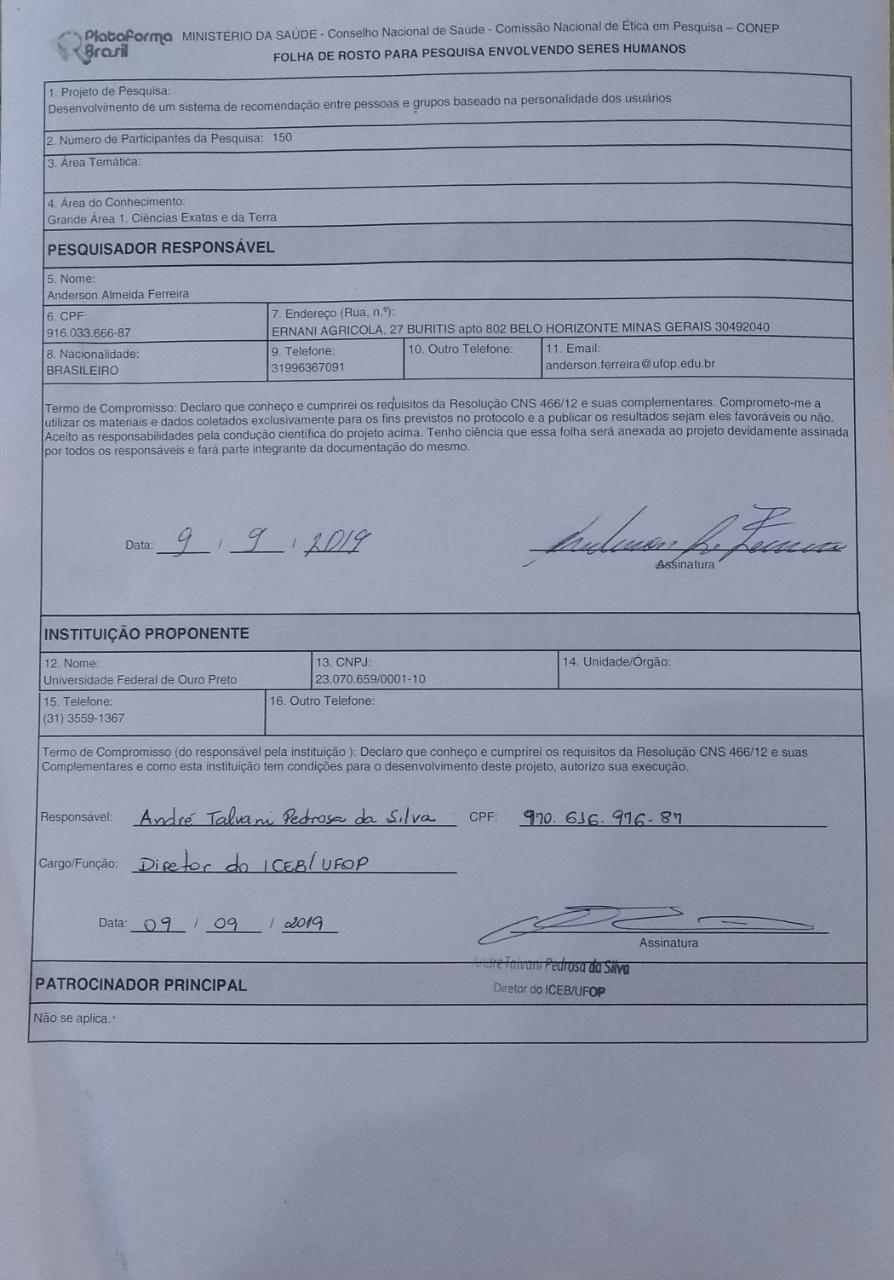 Plataforma Brasil
MINISTÉRIO DA SAÚDE - Conselho Nacional de Saúde - Comissão Nacional de Ética em Pesquisa – CONEP
FOLHA DE ROSTO PARA PESQUISA ENVOLVENDO SERES HUMANOS
1. Projeto de Pesquisa:
Desenvolvimento de um sistema de recomendação entre pessoas e grupos baseado na personalidade dos usuários
2. Número de Participantes da Pesquisa: 150
3. Área Temática:
4. Área do Conhecimento:
Grande Área 1. Ciências Exatas e da Terra
PESQUISADOR RESPONSÁVEL
5. Nome:
Anderson Almeida Ferreira
6. CPF:
916.033.666-87
7. Endereço (Rua, n.º):
ERNANI AGRICOLA, 27 BURITIS apto 802 BELO HORIZONTE MINAS GERAIS 30492040
8. Nacionalidade:
BRASILEIRO
9. Telefone:
31996367091
10. Outro Telefone:
11. Email:
anderson.ferreira@ufop.edu.br
Termo de Compromisso: Declaro que conheço e cumprirei os requisitos da Resolução CNS 466/12 e suas complementares. Comprometo-me a
utilizar os materiais e dados coletados exclusivamente para os fins previstos no protocolo e a publicar os resultados sejam eles favoráveis ou não.
Aceito as responsabilidades pela condução científica do projeto acima. Tenho ciência que essa folha será anexada ao projeto devidamente assinada
por todos os responsáveis e fará parte integrante da documentação do mesmo.
Data: 9 / 9 / 2019
Assinatura
INSTITUIÇÃO PROPONENTE
12. Nome:
Universidade Federal de Ouro Preto
13. CNPJ:
23.070.659/0001-10
14. Unidade/Órgão:
15. Telefone:
(31) 3559-1367
16. Outro Telefone:
Termo de Compromisso (do responsável pela instituição ): Declaro que conheço e cumprirei os requisitos da Resolução CNS 466/12 e suas
Complementares e como esta instituição tem condições para o desenvolvimento deste projeto, autorizo sua execução.
Responsável: André Talvani Pedrosa da Silva CPF: 970. 616. 976-87
Cargo/Função: Diretor do ICEB/UFOP
Data: 09 / 09 / 2019
Assinatura
André Talvani Pedrosa da Silva
Diretor do ICEB/UFOP
PATROCINADOR PRINCIPAL
Não se aplica.